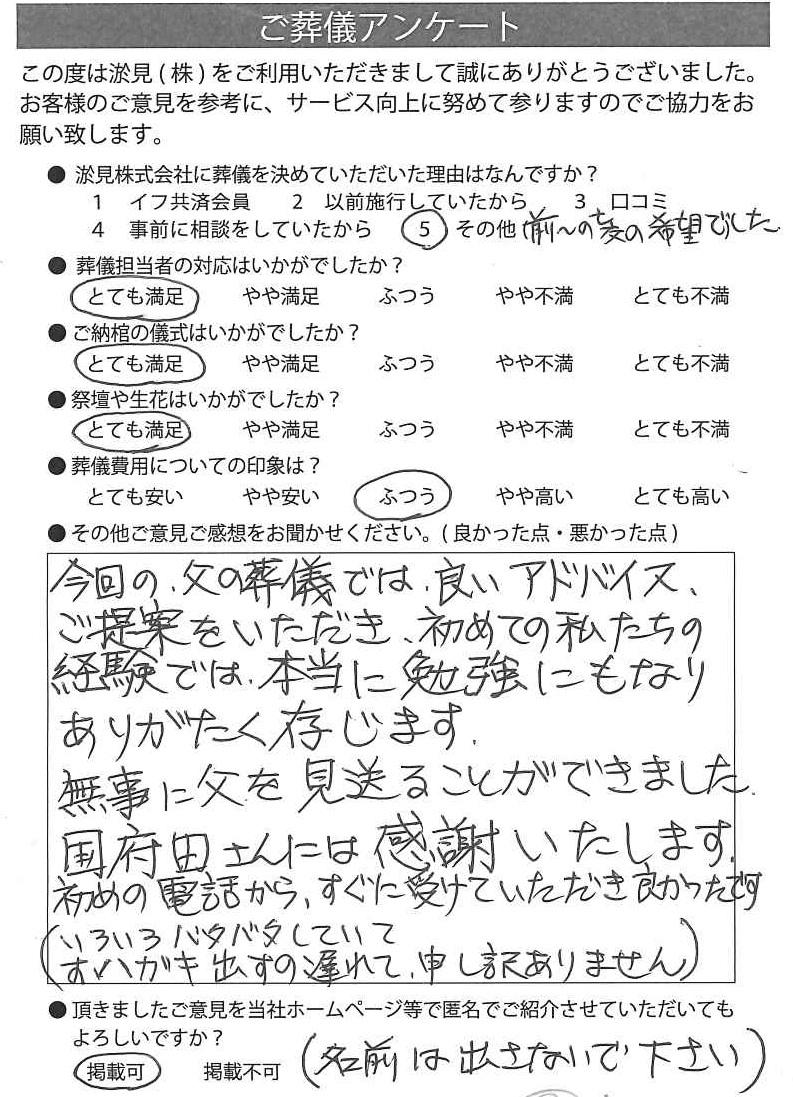 ご葬儀アンケート
この度は淤見(株)をご利用いただきまして誠にありがとうございました。
お客様のご意見を参考に、サービス向上に努めて参りますのでご協力をお
願い致します。
● 淤見株式会社に葬儀を決めていただいた理由はなんですか?
1 イフ共済会員 2 以前施行していたから 3 口コミ
4 事前に相談をしていたから 5 その他 前々の の希望でした
● 葬儀担当者の対応はいかがでしたか?
とても満足 やや満足 ふつう やや不満 とても不満
● ご納棺の儀式はいかがでしたか?
とても満足 やや満足 ふつう やや不満 とても不満
● 祭壇や生花はいかがでしたか?
とても満足 やや満足 ふつう やや不満 とても不満
● 葬儀費用についての印象は?
とても安い やや安い ふつう やや高い とても高い
● その他ご意見ご感想をお聞かせください。(良かった点・悪かった点)
今回の、父の葬儀では、良いアドバイス、
ご提案をいただき、初めての私たちの
経験では、本当に勉強にもなり
ありがたく存じます。
無事に父を見送ることができました。
国府田さんには感謝いたします。
初めの電話から、すぐに受けていただき良かったです
(いろいろバタバタしていて
ハガキ出すの遅れて、申し訳ありません)
● 頂きましたご意見を当社ホームページ等で匿名でご紹介させていただいても
よろしいですか?
掲載可 掲載不可 (名前は出さないで下さい)